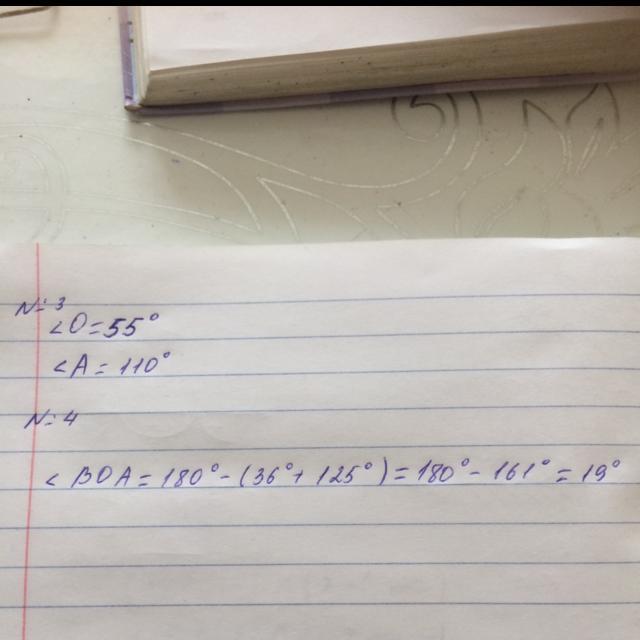 № 3
∠O=55°
∠A=110°
№ 4
∠BOA=180°-(36°+125°)=180°-161°=19°